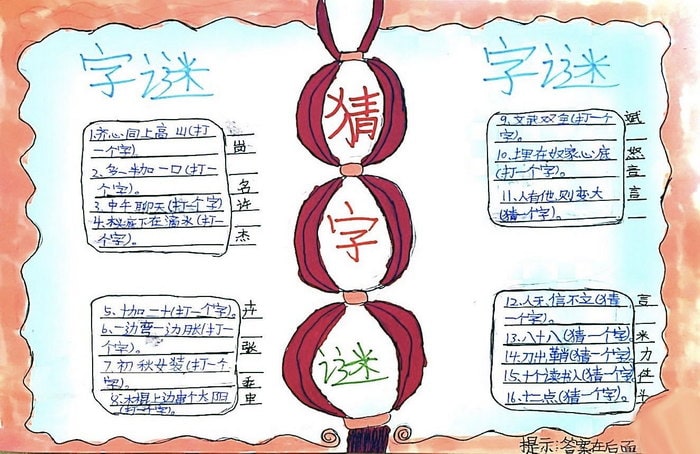 字谜
1.齐心同上高山(打
一个字)。
岗
2.多一半加一口(打一
个字)。
名
3.中午聊天(打一个字)
许
4.树底下在滴水(打一
个字)。
杰
5、十加二十(打一个字)。
卉
6、一边弯一边胀(打一
个字)。
张
7、初秋女装(打一个
字)。
8、木棍上边串个太阳
(打一个字)。
猜
字
谜
字谜
9、文武双全(打一个
字)。
斌
10、上里在奴家心底
(打一个字)。
怒
11、人有他则变大
(猜一个字)。
12、人无信不立(猜
一个字)。
言
13、八十八(猜一个字)。
米
14、刀出鞘(猜一个字)。
力
15、十个读书人(猜一个字)
仕
16、十二点(猜一个字)。
斗
提示:答案在后面